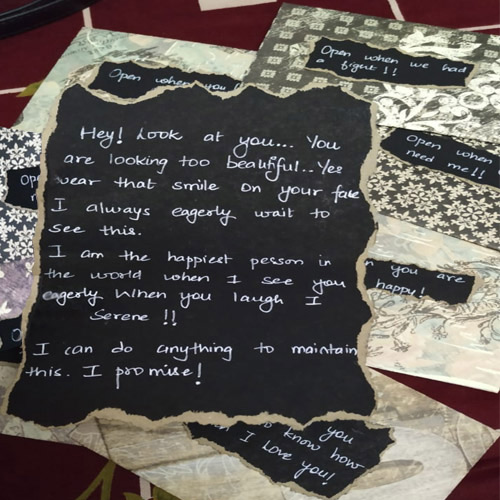 Open when we had
a fight!!
Open when you
Open when
need me!!
Hey! Look at you... You
are looking too beautiful.. Yes
wear that smile on your face
I always eagerly wait to
see this.
I am the happiest person in
the world when I see you
eagerly When you laugh I
Serene !!
I can do anything to maintain
this. I promise!
you are
happy!
you
to know how
I Love you!